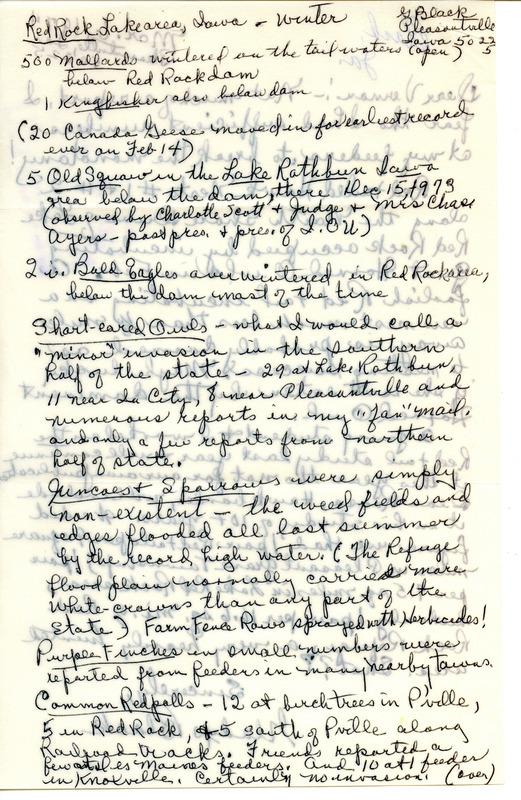 Red Rock Lake area, Iowa - Winter
G Black
Pleasantville
Iowa 50225
500 Mallards wintered on the tail-waters (open)
below Red Rock dam
1 Kingfisher also below dam
(20 Canada Geese moved in for earliest record
ever on Feb 14)
5 Old Squaw in the Lake Rathbun Iowa
area below the dam, there Dec 15, 1973
(observed by Charlotte Scott & Judge & Mrs Chas
Ayers - past pres. & pres. of I.O.U)
2 i. Bald Eagles overwintered in Red Rock area,
below the dam most of the time
Short-eared Owls - what I would call a
"minor" invasion in the southern
half of the state - 29 at Lake Rathbun,
11 near Ia City, 8 near Pleasantville and
numerous reports in my "fan" mail.
and only a few reports from northern
half of state.
Juncoes & Sparrows were simply
non-existent - the weed fields and
edges flooded all last summer
by the record high water. (The Refuge
flood plain normally carried more
White-crowns than any part of the
State.) Farm Fence Rows sprayed with Herbicides!
Purple Finches in small numbers were
reported from feeders in many nearby towns.
Common Redpolls - 12 at birch trees in P'ville,
5 in Red Rock, & 5 south of Pville along
Railroad tracks. Friends reported a
few at Des Moines feeders. And 10 at 1 feeder
in Knoxville. Certainly no invasion. (over)